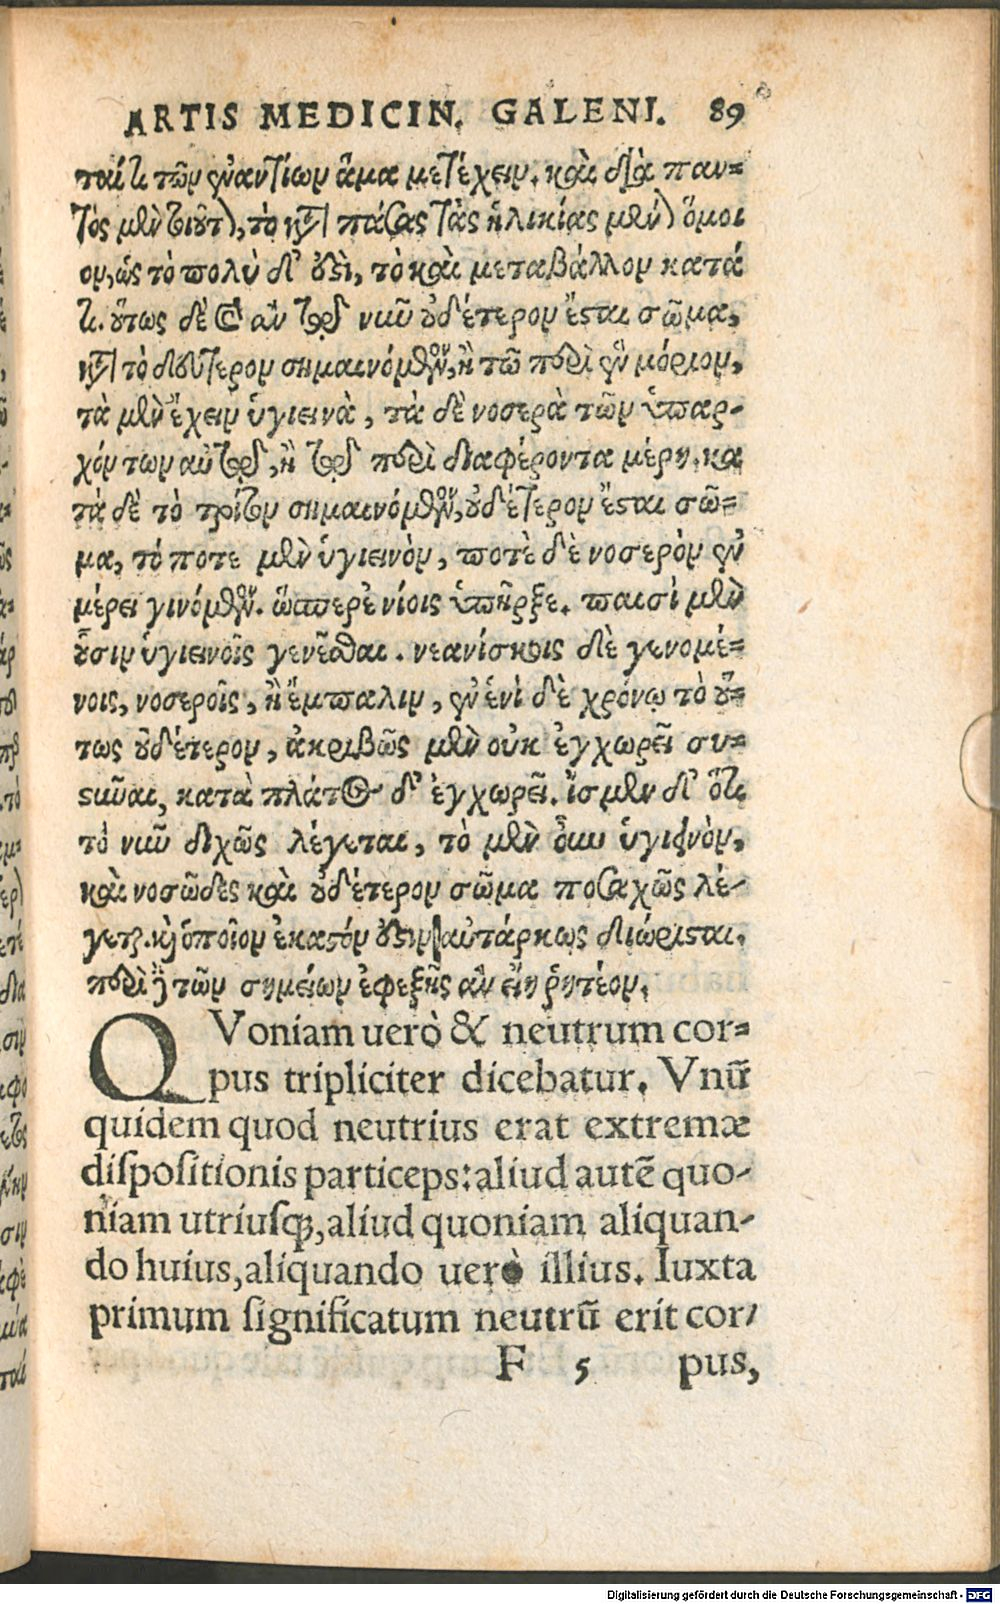 ARTIS MEDICIN. GALENI. 89
τά τι τῶν ἐναντίων ἅμα μετέχειν. καὶ διὰ παν-
τὸς μὲν τοιοῦτ), τὸ κτ̀ πάσας τὰς ἡλικίας μὲν) ὅμοι
ον, ὡς τὸ πολὺ δ' ὅ ἐςὶ, τὸ καὶ μεταβάλλον κατά
τι. οὕτως δὲ καὶ ἀν τοῖς νιῦ οὐδέτερον ἔςται σῶμα,
κτ̀ τὸ δεύτερον σημαινόμενον, ἢ τῷ περὶ ἓν μόριον,
τὰ μὲν ἔχειν ὑγιεινὰ, τὰ δὲ νοσερὰ τῶν ὑπαρ-
χόντων αὐτοῖς, ἢ τοῖς περὶ διαφέροντα μέρη. κα
τὰ δὲ τὸ τρίτον σημαινόμενον, οὐδέτερον ἔςται σῶ-
μα, τό ποτε μὲν ὑγιεινὸν, ποτὲ δὲ νοσερὸν ἐν
μέρει γινόμενον. ὥσπερ ἐνίοις ὑπῆρξε. παισὶ μὲν
οὖσιν ὑγιεινοῖς γενέσθαι. νεανίσκοις δὲ γενομέ-
νοις, νοσεροῖς, ἢ ἔμπαλιν, ἐν ἑνὶ δὲ χρόνῳ τὸ οὕ-
τως οὐδέτερον, ἀκριβῶς μὲν οὐκ ἐγχωρεῖ συ-
ςῆναι, κατὰ πλάτος δ' ἐγχωρεῖ. ἴσμεν δ' ὅτι
τὸ νιῦ διχῶς λέγεται, τὸ μὲν οὖν ὑγιεινὸν,
καὶ νοσῶδες καὶ οὐδέτερον σῶμα ποσαχῶς λέ-
γεται. καὶ ὁποῖον ἕκαςόν ἐςιν αὐτάρκως διώριςται.
περὶ δὲ τῶν σημείων ἐφεξῆς ἂν εἴη ῥητέον.
QVoniam uerò & neutrum cor=
pus tripliciter dicebatur. Vnũ
quidem quod neutrius erat extremæ
diſpoſitionis particeps: aliud autẽ quo-
niam utriuſq;, aliud quoniam aliquan-
do huius, aliquando uerò illius. Iuxta
primum ſignificatum neutrũ erit cor/
F 5 pus,
Digitalisierung gefördert durch die Deutsche Forschungsgemeinschaft - DFG